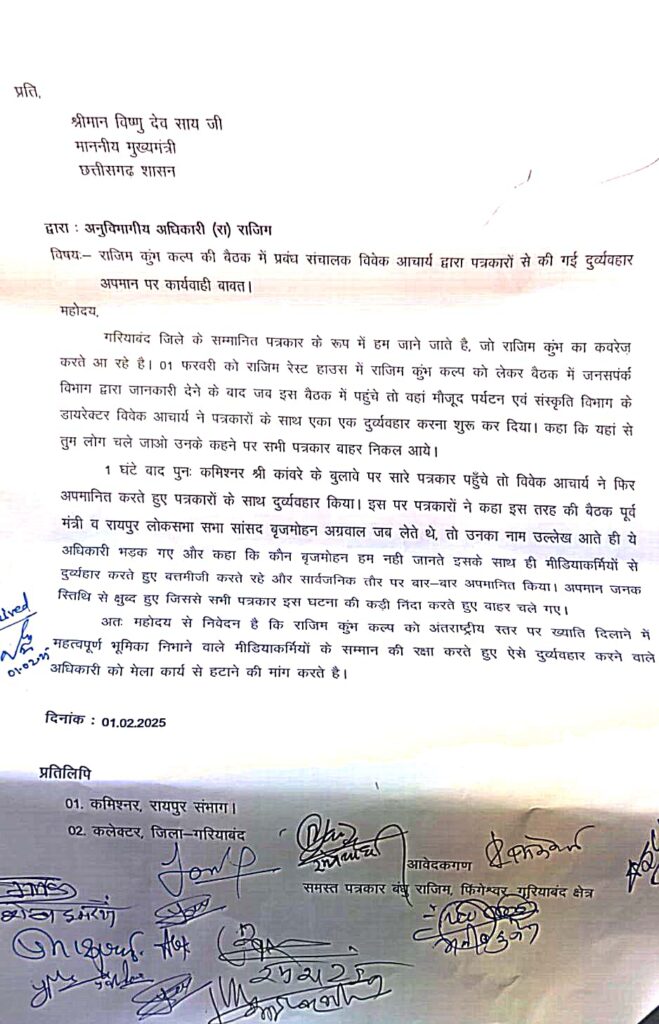 प्रति,
श्रीमान विष्णु देव साय जी
माननीय मुख्यमंत्री
छत्तीसगढ शासन
द्वारा : अनुविभागीय अधिकारी (रा) राजिम
विषयः– राजिम कुंभ कल्प की बैठक में प्रबंध संचालक विवेक आचार्य द्वारा पत्रकारों से की गई दुर्व्यवहार
अपमान पर कार्यवाही बावत।
महोदय,
गरियाबंद जिले के सम्मानित पत्रकार के रूप में हम जाने जाते है, जो राजिम कुंभ का कवरेज़
करते आ रहे है। 01 फरवरी को राजिम रेस्ट हाउस में राजिम कुंभ कल्प को लेकर बैठक में जनसपंर्क
विभाग द्वारा जानकारी देने के बाद जब इस बैठक में पहुंचे तो वहां मौजूद पर्यटन एवं संस्कृति विभाग के
डायरेक्टर विवेक आचार्य ने पत्रकारों के साथ एका एक दुर्व्यवहार करना शुरू कर दिया। कहा कि यहां से
तुम लोग चले जाओ उनके कहने पर सभी पत्रकार बाहर निकल आये।
1 घंटे बाद पुनः कमिश्नर श्री कांवरे के बुलावे पर सारे पत्रकार पहुँचे तो विवेक आचार्य ने फिर
अपमानित करते हुए पत्रकारों के साथ दुर्व्यवहार किया। इस पर पत्रकारों ने कहा इस तरह की बैठक पूर्व
मंत्री व रायपुर लोकसभा सभा सांसद बृजमोहन अग्रवाल जब लेते थे, तो उनका नाम उल्लेख आते ही ये
अधिकारी भड़क गए और कहा कि कौन बृजमोहन हम नही जानते इसके साथ ही मीडियाकर्मियों से
दुर्व्यहार करते हुए बत्तमीजी करते रहे और सार्वजनिक तौर पर बार–बार अपमानित किया। अपमान जनक
स्तिथि से क्षुब्द हुए जिससे सभी पत्रकार इस घटना की कड़ी निंदा करते हुए बाहर चले गए।
अतः महोदय से निवेदन है कि राजिम कुंभ कल्प को अंतराष्ट्रीय स्तर पर ख्याति दिलाने में
महत्वपूर्ण भूमिका निभाने वाले मीडियाकर्मियों के सम्मान की रक्षा करते हुए ऐसे दुर्व्यवहार करने वाले
अधिकारी को मेला कार्य से हटाने की मांग करते है।
01.02.25
दिनांक : 01.02.2025
प्रतिलिपि
01. कमिश्नर, रायपुर संभाग।
02. कलेक्टर, जिला–गरियाबंद
आवेदकगण
समस्त पत्रकार बंधु राजिम, फिंगेश्वर गरियाबंद क्षेत्र